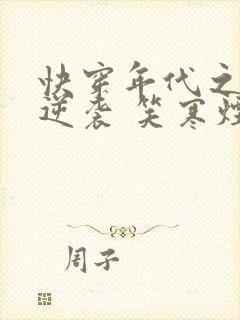 快穿年代之
逆袭 笑寒烟
周子